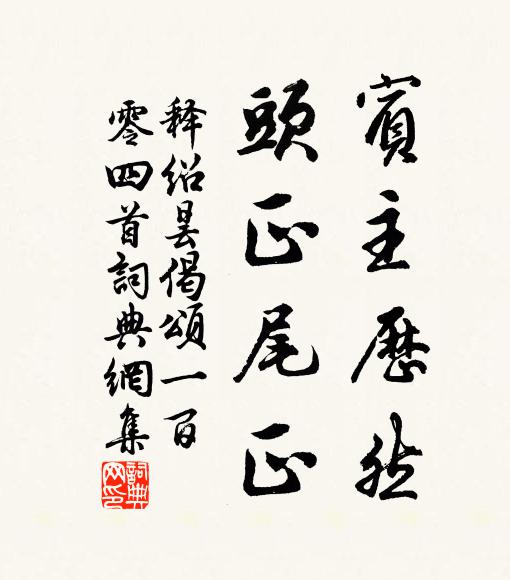 賓主歷然
頭正尾正
释紹曇偈頌一百
零四首詞典網集
詞典网印